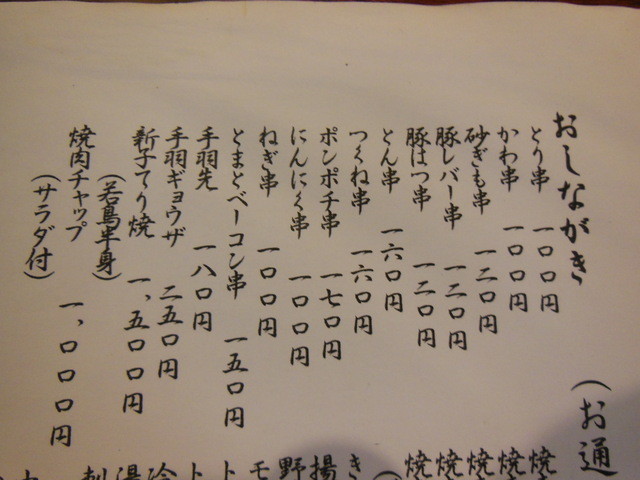 おしながき
とり串 一〇〇円
かわ串 一〇〇円
砂ぎも串 一二〇円
豚レバー串 一二〇円
豚はつ串 一二〇円
とん串 一六〇円
つくね串 一六〇円
ポンポチ串 一七〇円
にんにく串 一〇〇円
ねぎ串 一〇〇円
とまとベーコン串 一五〇円
手羽先 一八〇円
手羽ギョウザ 二五〇円
新子てり焼 一、五〇〇円
(若鳥半身)
焼肉チャップ 一、〇〇〇円
(サラダ付)
(お通
焼
焼
焼
焼
焼
(
き
揚
野
モ
ト
ト
冷
湯
刺